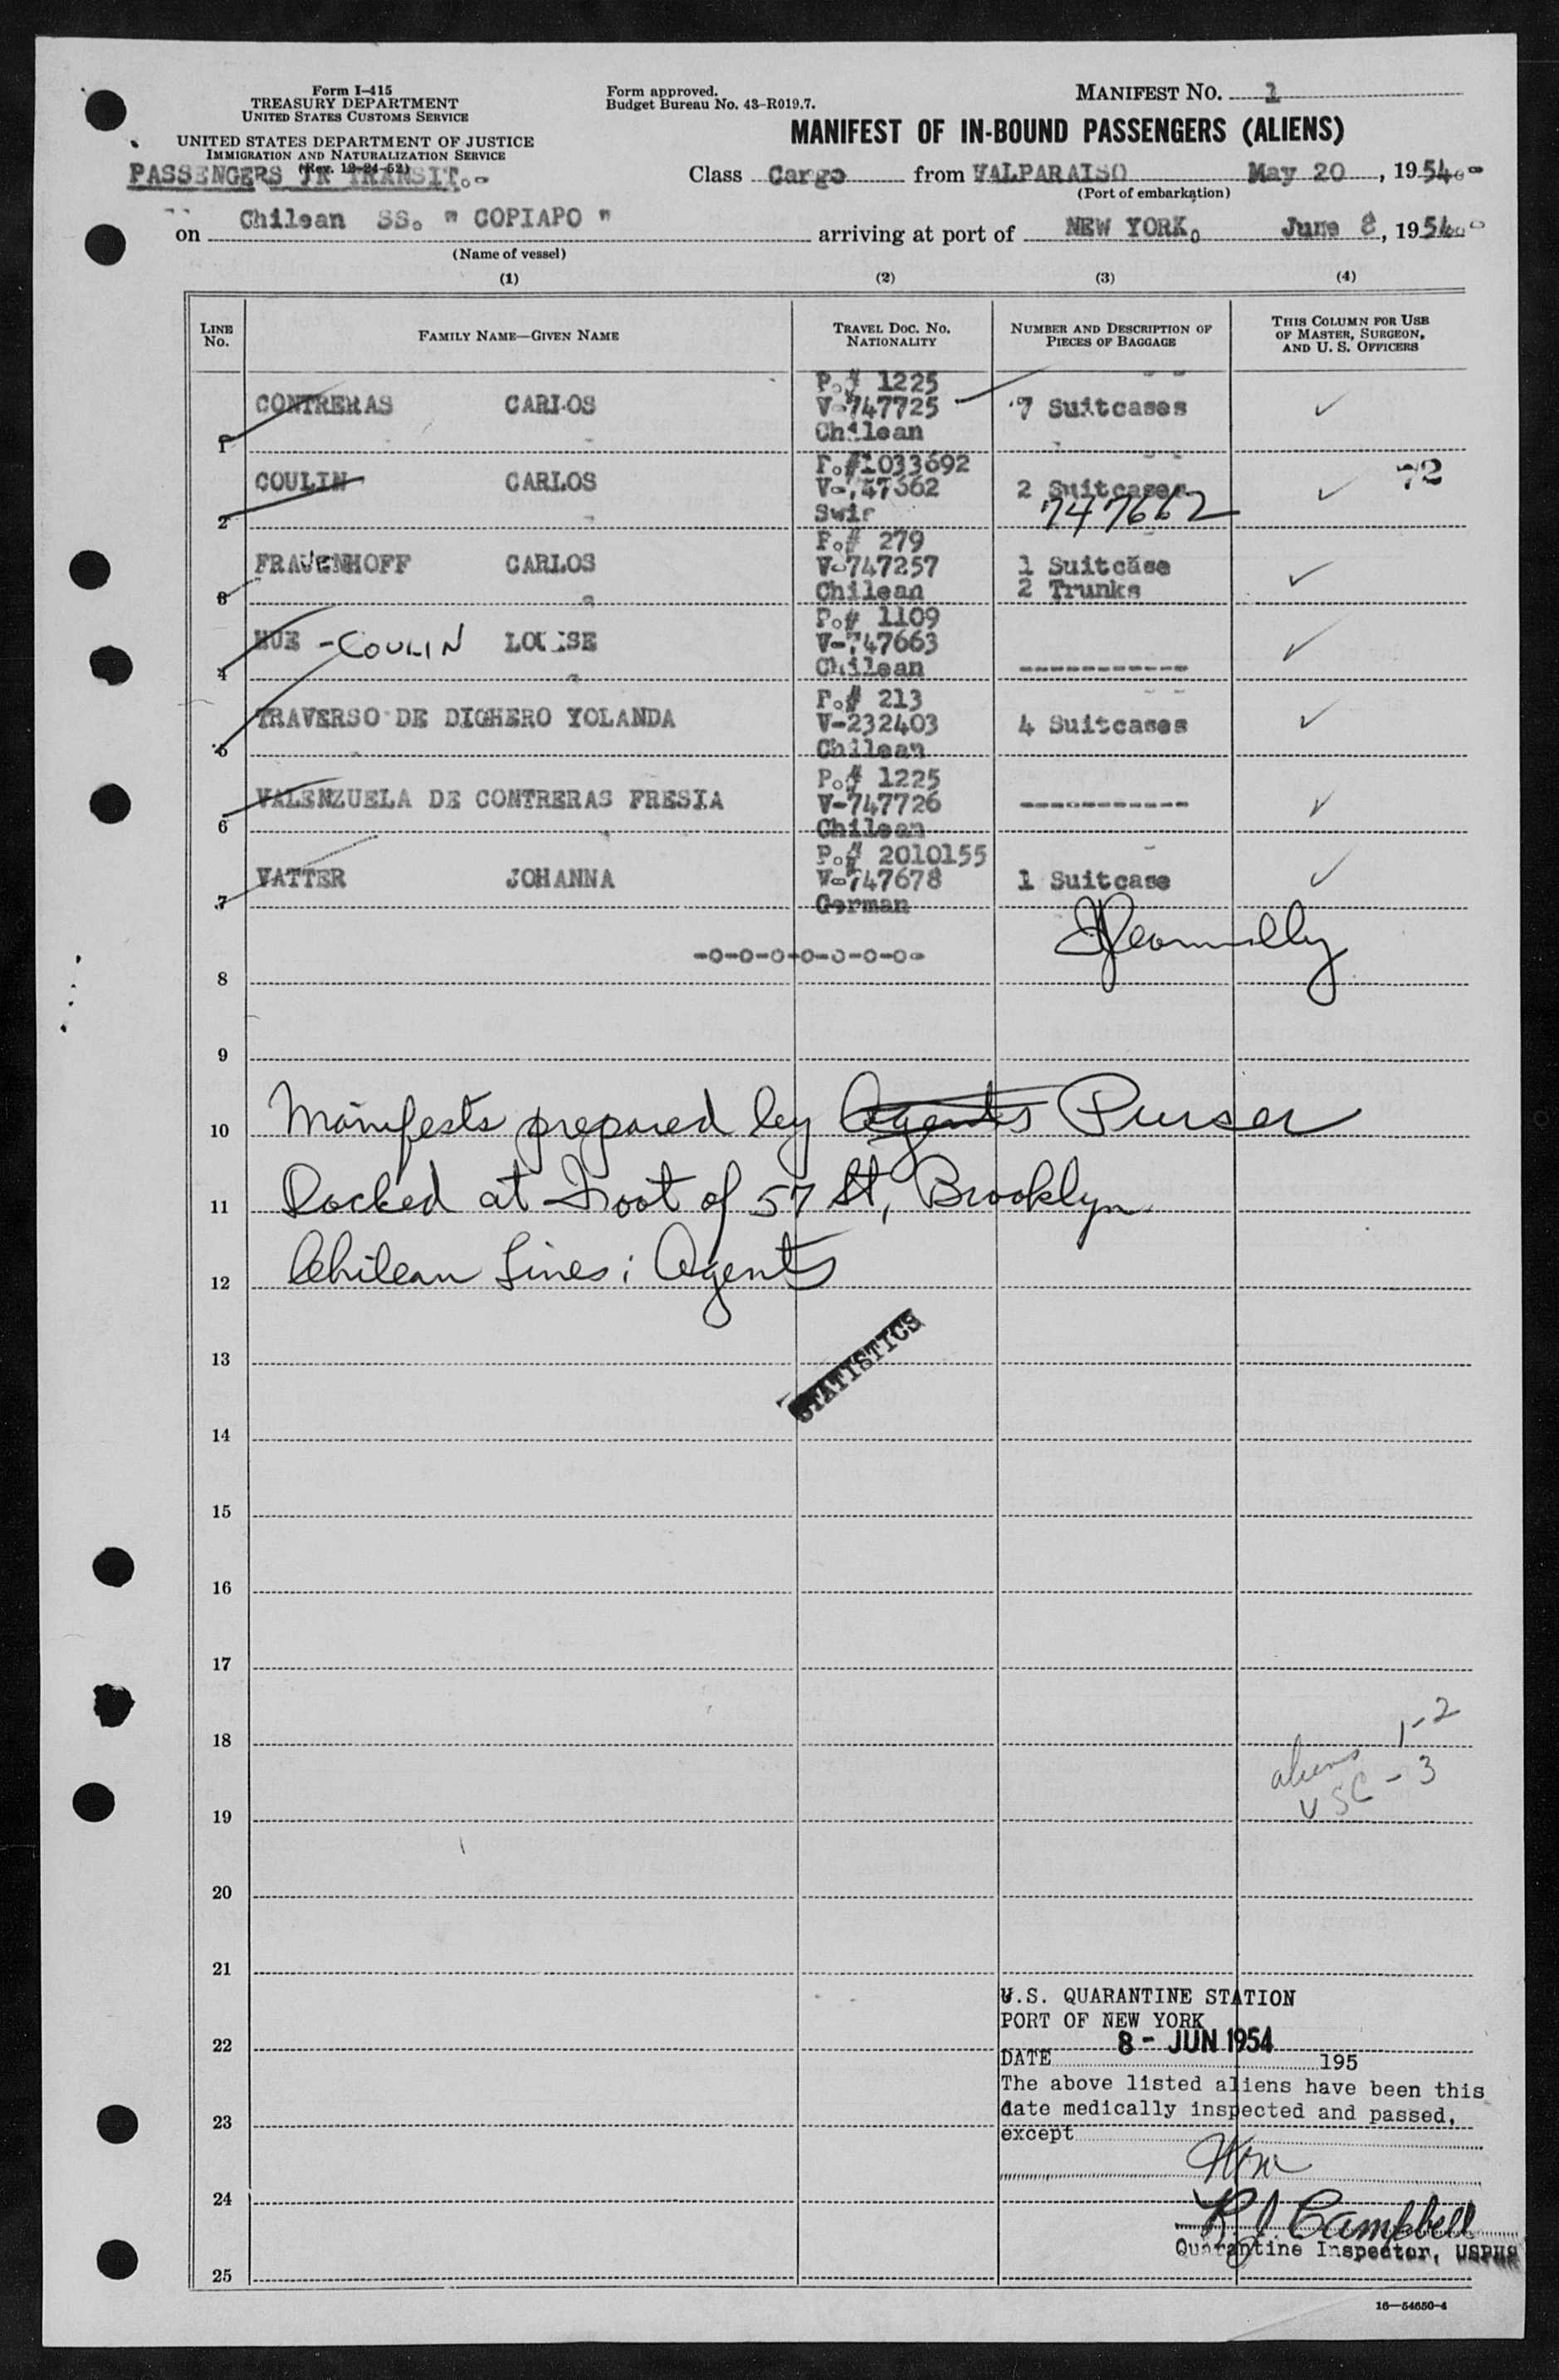 Form I-415
TREASURY DEPARTMENT
UNITED STATES CUSTOMS SERVICE
UNITED STATES DEPARTMENT OF JUSTICE
IMMIGRATION AND NATURALIZATION SERVICE
(Rev. 12-24-52)
PASSENGERS IN TRANSIT.-
Form approved.
Budget Bureau No. 43-R019.7.
MANIFEST No. 1
MANIFEST OF IN-BOUND PASSENGERS (ALIENS)
Class Cargo from VALPARAISO May 20, 1954
(Port of embarkation)
on Chilean SS. " COPIAPO " arriving at port of NEW YORK. June 8, 1954
(Name of vessel)
(1) (2) (3) (4)
LINE No. FAMILY NAME—GIVEN NAME TRAVEL DOC. No. NATIONALITY NUMBER AND DESCRIPTION OF PIECES OF BAGGAGE THIS COLUMN FOR USE OF MASTER, SURGEON, AND U. S. OFFICERS
P.# 1225
CONTRERAS CARLOS V-747725 7 Suitcases ✓
1 Chilean
P.#1033692
COULIN CARLOS V-747662 2 Suitcases ✓ 72
2 747662
P.# 279
FRAUENHOFF CARLOS V-747257 1 Suitcase ✓
3 Chilean 2 Trunks
P.# 1109
HUE - COULIN LOUISE V-747663 ✓
4 Chilean -----------
P.# 213
TRAVERSO DE DIGHERO YOLANDA V-232403 4 Suitcases ✓
5 Chilean
P.# 1225
VALENZUELA DE CONTRERAS FRESIA V-747726 ----------- ✓
6 Chilean
P.# 2010155
VATTER JOHANNA V-747678 1 Suitcase ✓
7 German
-o-o-o-o-o-o-o-
8
9
10 Manifests prepared by Agents Purser
11 Docked at Foot of 57 St, Brooklyn
12 Chilean Lines; Agents
STATISTICS
13
14
15
16
17
18 1-2
aliens
USC - 3
19
20
21
U.S. QUARANTINE STATION
PORT OF NEW YORK
22 8 - JUN 1954
DATE 195
The above listed aliens have been this
23 date medically inspected and passed,
except
24
R J Campbell
Quarantine Inspector, USPHS
25
16—54650-4